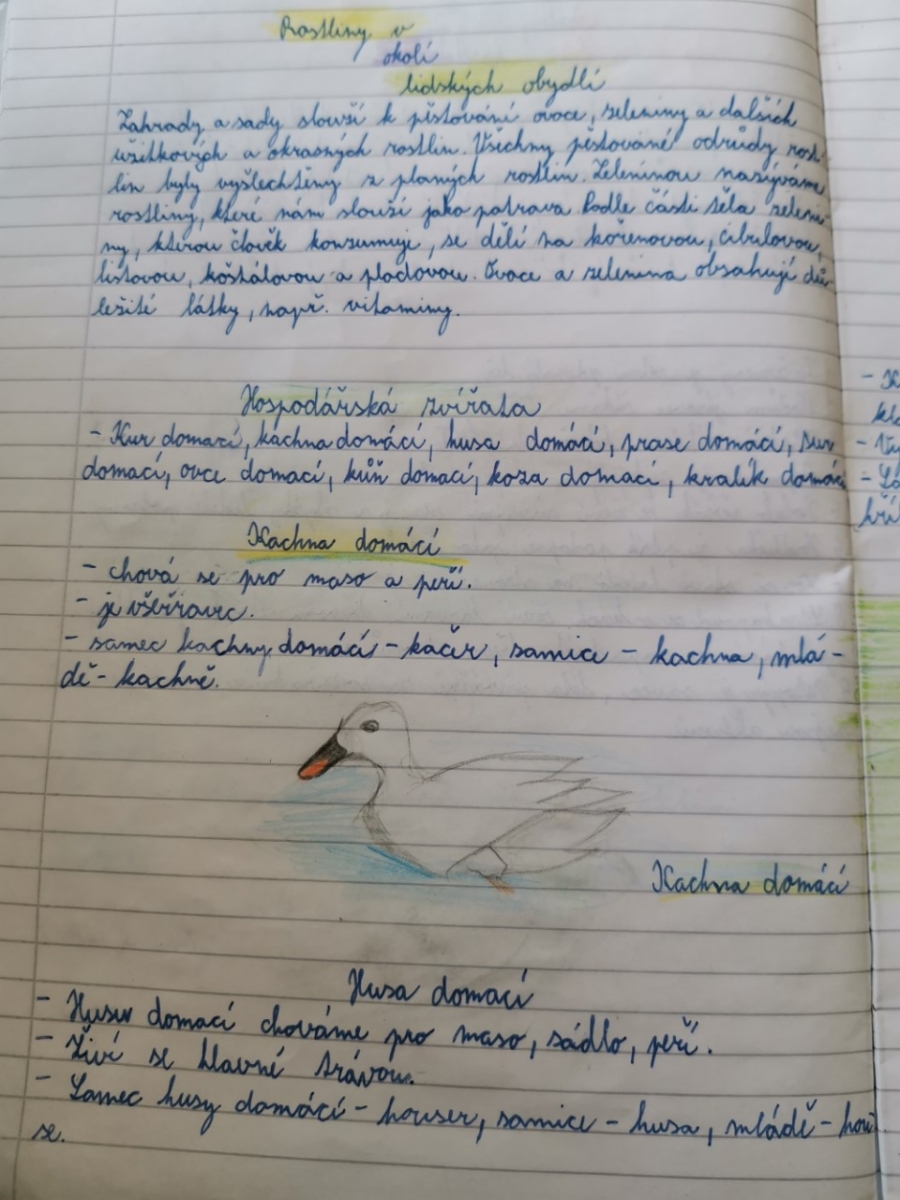 Rostliny v
okolí
lidských obydlí
Zahrady a sady slouží k pěstování ovoce, zeleniny a dalších
užitkových a okrasných rostlin. Všechny pěstované odrůdy rost-
lin byly vyšlechtěny z planých rostlin. Zeleninou nazýváme
rostliny, které nám slouží jako potrava Podle části těla zeleni-
ny, kterou člověk konzumuje, se dělí na kořenovou, cibulovou,
listovou, košťálovou a plodovou. Ovoce a zelenina obsahují dů-
ležité látky, např. vitaminy.
Hospodářská zvířata
- Kur domací, kachna domácí, husa domácí, prase domácí, tur
domací, ovce domací, kůň domací, koza domací, kralík domácí
Kachna domácí
- chová se pro maso a peří.
- je všežravec.
- samec kachny domácí - kačer, samice - kachna, mlá-
dě - kachně.
Kachna domácí
Husa domací
- Husu domací chováme pro maso, sádlo, peří.
- Živí se hlavně trávou.
- Samec husy domácí - houser, samice - husa, mládě - hou
se.